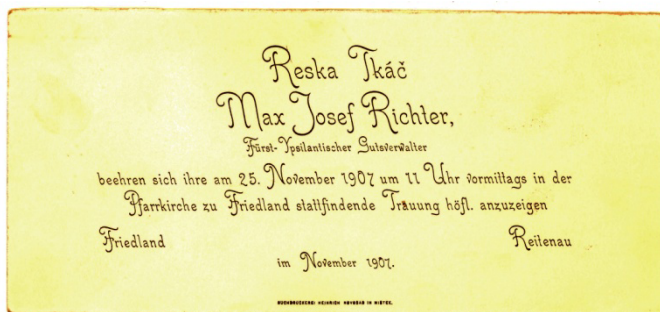 Reska Tkáč
Max Josef Richter,
Fürst-Ypsilantischer Gutsverwalter
beehren sich ihre am 25. November 1907 um 11 Uhr vormittags in der
Pfarrkirche zu Friedland stattfindende Trauung höfl. anzuzeigen
Friedland Reitenau
im November 1907.
BUCHDRUCKEREI HEINRICH IN MISTEK.